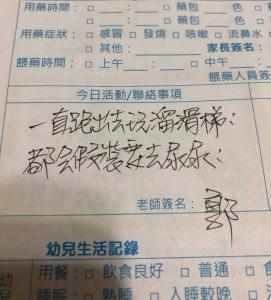 用藥時間: □ ： □藥包 色 □
□藥包 色 □
用藥症狀: □感冒 □發燒 □咳嗽 □流鼻水
□其他: 家長簽名:
餵藥時間: □上午 ： □中午 ：
餵藥人員簽
今日活動/聯絡事項
一直跑出去玩溜滑梯;
都會假裝要去尿尿;
老師簽名: 郭
幼兒生活記錄
用餐: □飲食良好 □普通 □食
睡眠: □熟睡 □入睡較晚 □